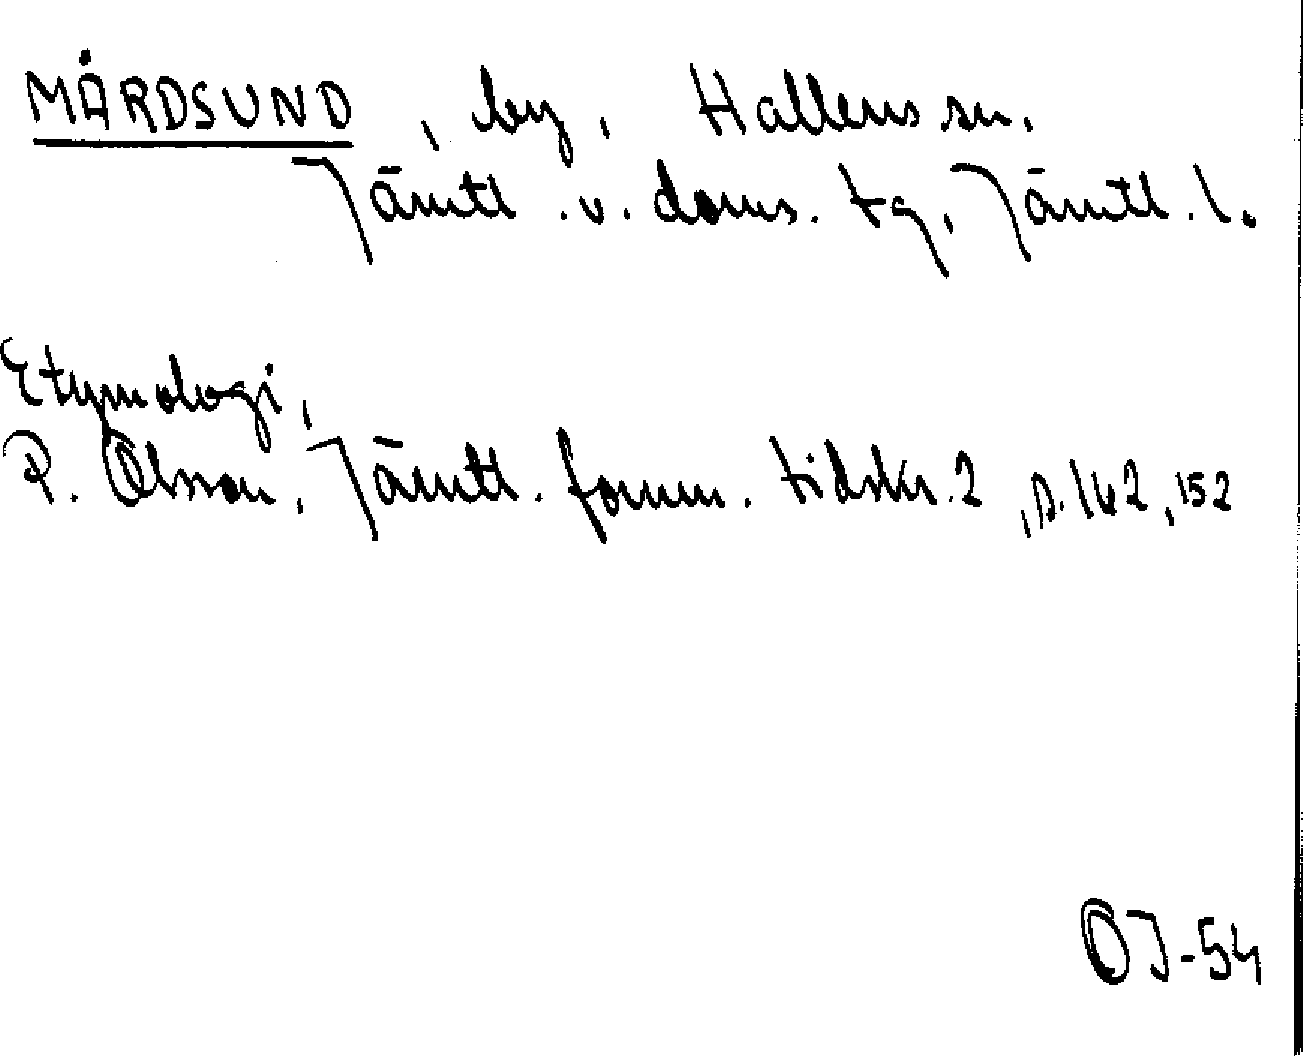 MÅRDSUND, by, Hallens sn.
Jämtl. v. doms. tg, Jämtl. l.
Etymologi,
P. Olsson, Jämtl. fornm. tidskr. 2, s. 142, 152
OJ-54